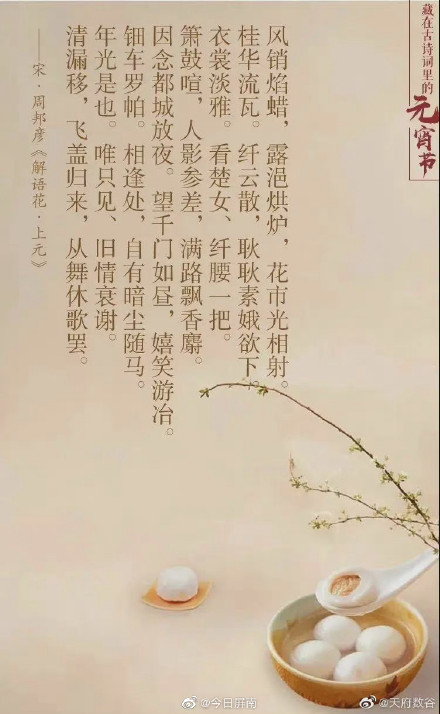 藏在古诗词里的
元宵节
风销焰蜡，露浥烘炉，花市光相射。
桂华流瓦。纤云散，耿耿素娥欲下
衣裳淡雅。看楚女、纤腰一把。
箫鼓喧，人影参差，满路飘香麝。
因念都城放夜。望千门如昼，嬉笑游冶。
钿车罗帕。相逢处，自有暗尘随马。
年光是也。唯只见、旧情衰谢。
清漏移，飞盖归来，从舞休歌罢。
——宋·周邦彦《解语花·上元》
@今日屏南
@天府数谷